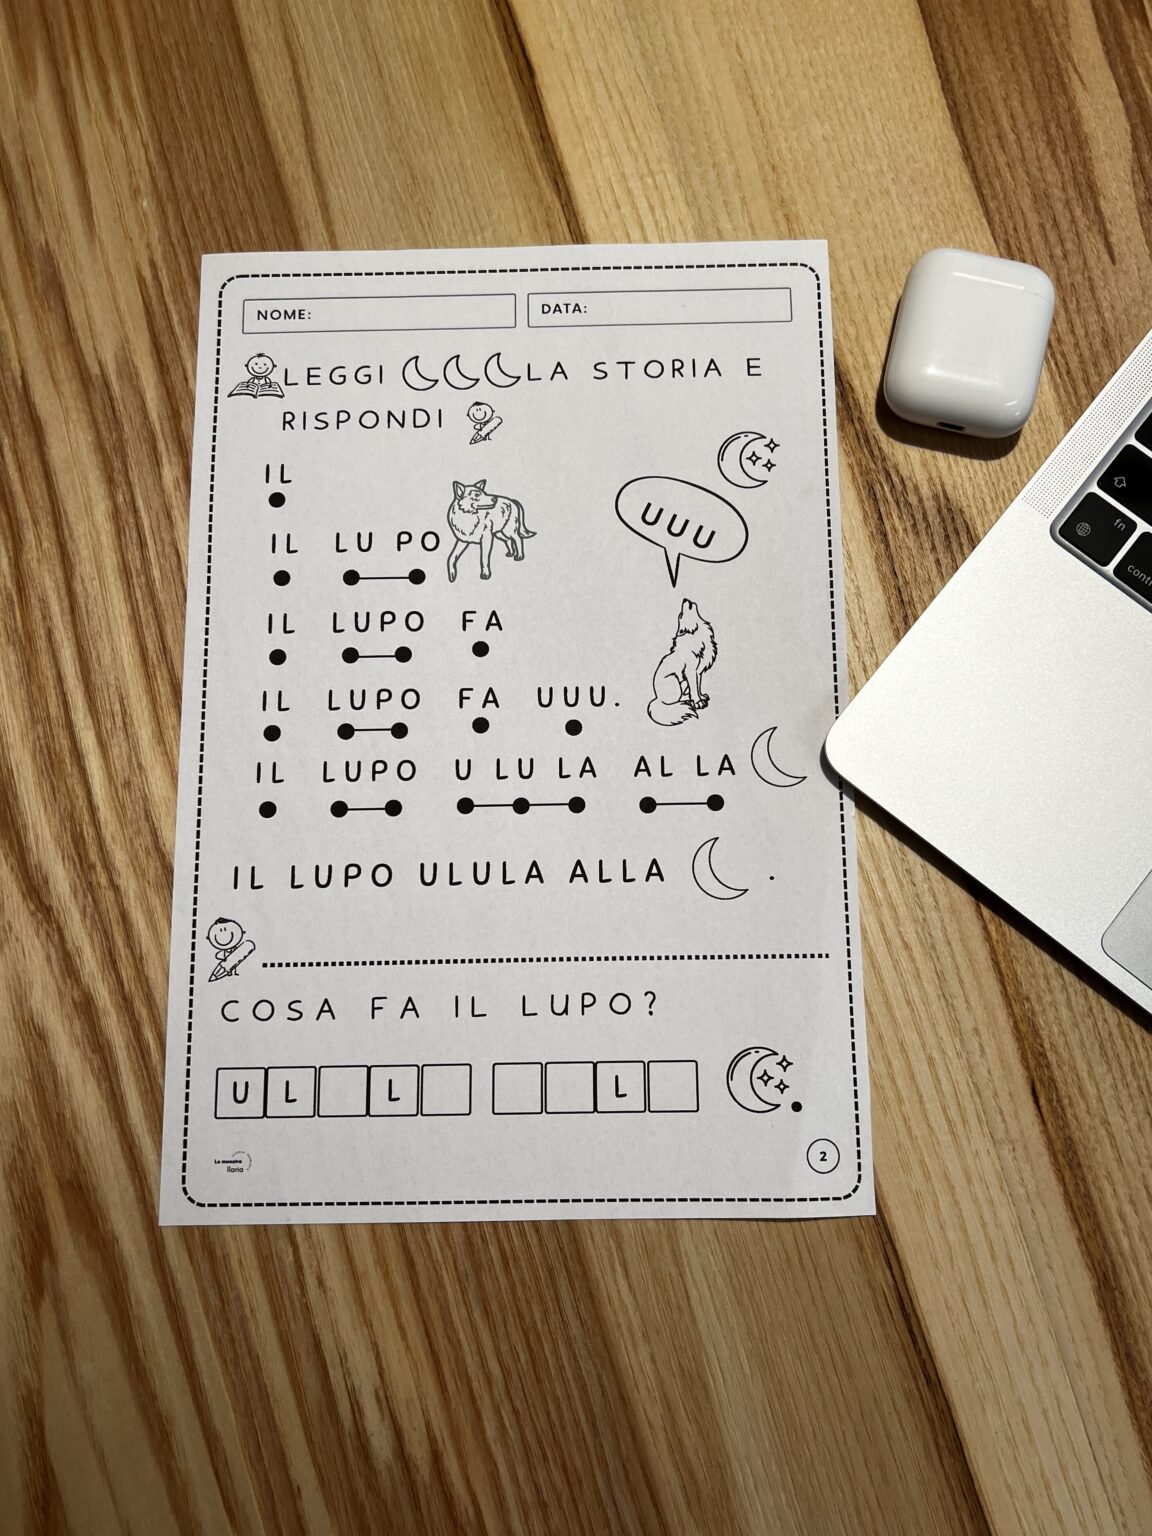 NOME:
DATA:
LEGGI LA STORIA E
RISPONDI
IL
IL LU PO
UUU
IL LUPO FA
IL LUPO FA UUU.
IL LUPO U LU LA AL LA
IL LUPO ULULA ALLA .
COSA FA IL LUPO?
U L L L
La maestra
Ilaria
2
fn